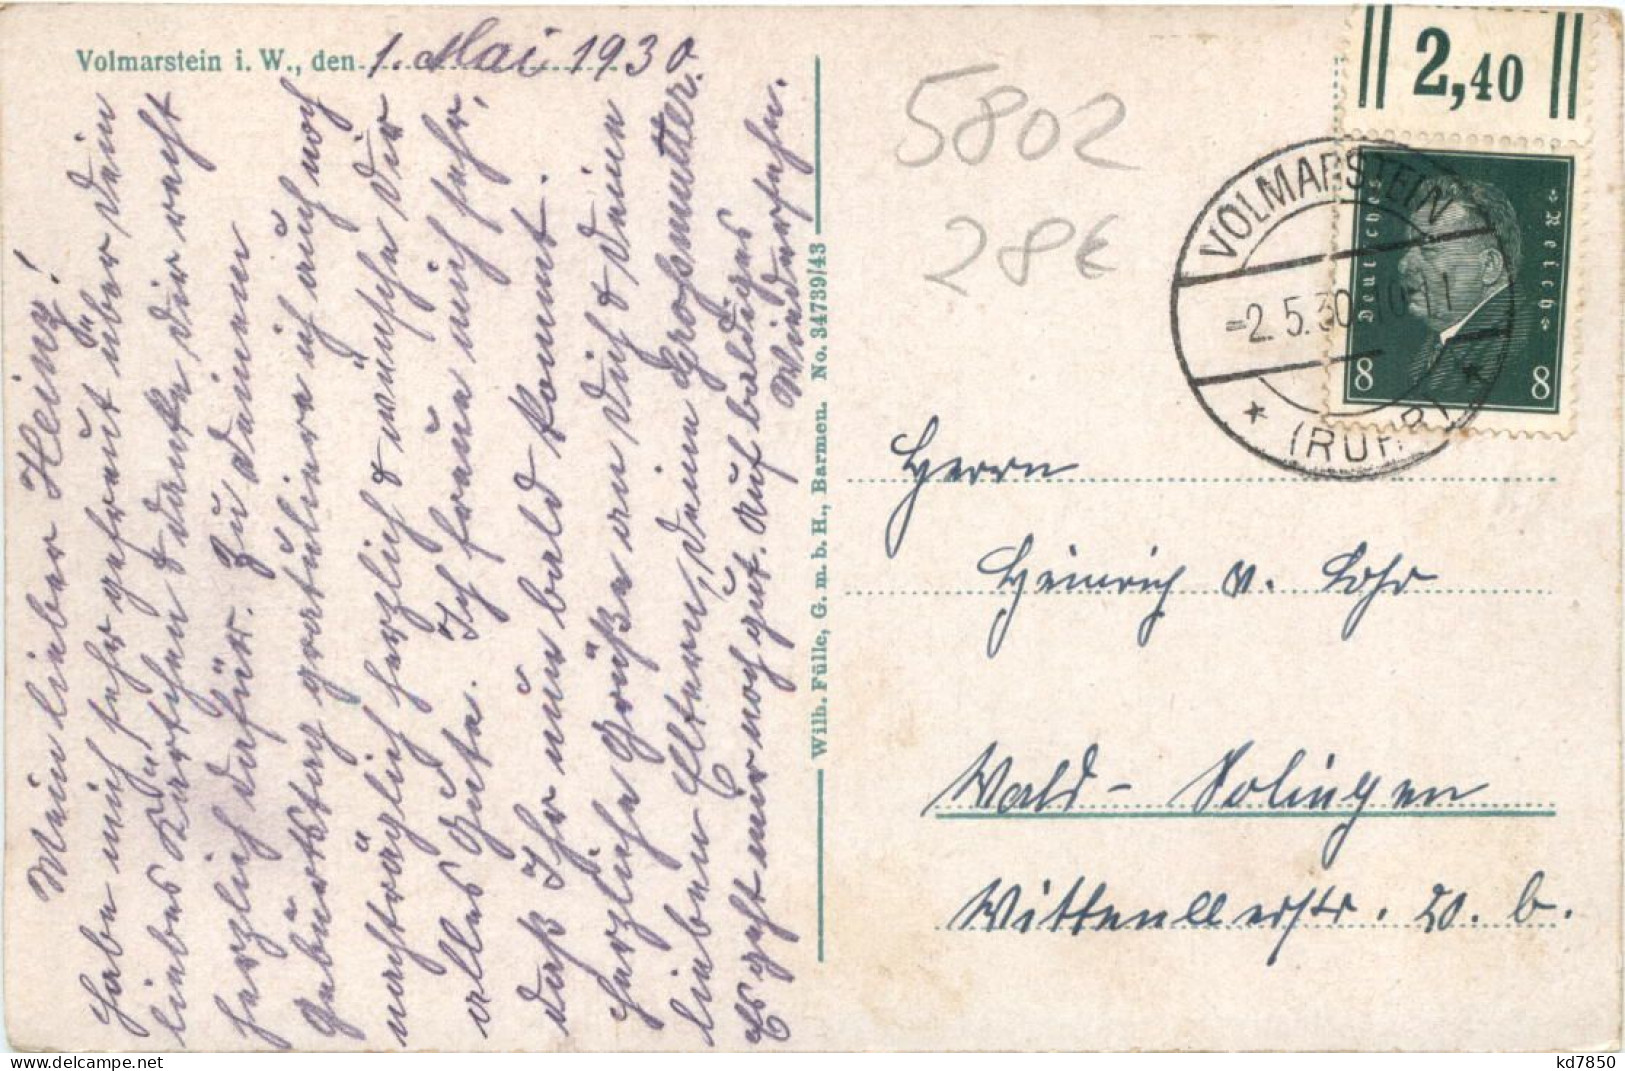 Volmarstein i. W., den 1. Mai 1930
Mein lieber Heinz!
Habe mich sehr gefreut über dein
liebes Kärtchen & danke dir recht
herzlich dafür. Zu deinem
Geburtstag gratuliere ich auch noch
nachträglich herzlich & wünsche dir
alles Gute. Ich freue mich sehr,
daß Ihr nun bald kommt.
Herzliche Grüße an dich & deine
lieben Eltern, deine Grossmutter.
Es geht mir noch gut. Auf baldiges
Wiedersehn.
Wilh. Fülle, G. m. b. H., Barmen. No. 34739/43
5802
28€
2,40
Deutsches Reich
8 8
VOLMARSTEIN
-2.5.30.10-11
(RUHR)
Herrn
Heinrich v. Lohr
Wald - Solingen
Wittenllerstr. 20. b.
delcampe.net
kd7850